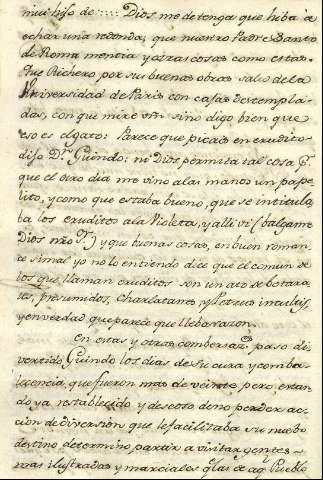 mui hijo de .... Dios me detenga que hiba a
echar una redonda, que nuestro Padre Santo
de Roma mentia y otras cosas como estas.
Que Richero por sus buenas obras salio de la
Universidad de Paris con cajas destempla-
das, con que mire vm sino digo bien que
eso es el gato: Parece que picais en erudito
dijo Dn. Guindo: ni Dios permita tal cosa Sr.
que el otro dia me vino a las manos un pape-
lito, y como que estaba bueno, que se intitula
ba los eruditos a la Violeta, y alli vi (balgame
Dios nro Sr.) y que buenas cosas, en buen roman-
ce si mal yo no lo entiendo dice que el comun de
los que llaman eruditos son un ato de botara-
tes, presumidos, Charlatanes
y en verdad que parece que lleba razon.
En estas y otras combersaz. paso di-
vertido Guindo los dias de su cura y comba-
lecencia, que fueron mas de veinte pero, estan-
do ya restablecido y deseoso de no perder ac-
cion de diversion que le facilitaba su nuebo
destino determino partir a visitar gentes
mas ilustradas y marciales q. las de aq. Pueblo